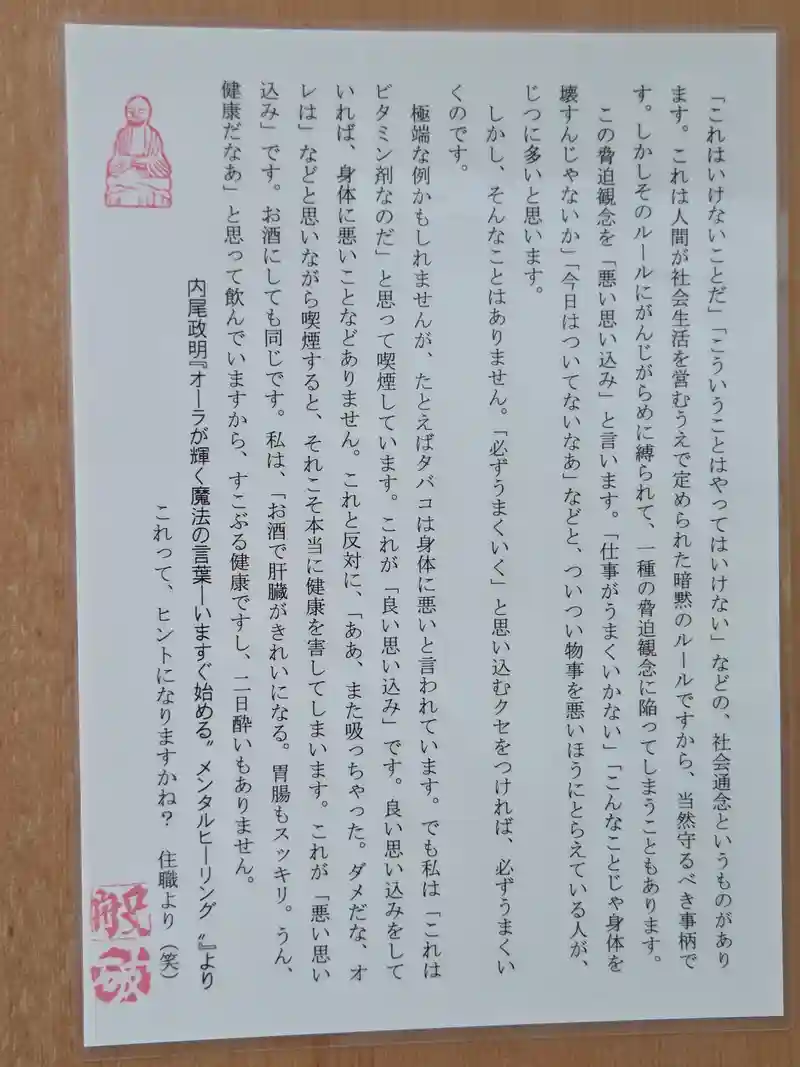 「これはいけないことだ」「こういうことはやってはいけない」などの、社会通念というものがあり
ます。これは人間が社会生活を営むうえで定められた暗黙のルールですから、当然守るべき事柄で
す。しかしそのルールにがんじがらめに縛られて、一種の脅迫観念に陥ってしまうこともあります。
この脅迫観念を「悪い思い込み」と言います。「仕事がうまくいかない」「こんなことじゃ身体を
壊すんじゃないか」「今日はついてないなあ」などと、ついつい物事を悪いほうにとらえている人が、
じつに多いと思います。
しかし、そんなことはありません。「必ずうまくいく」と思い込むクセをつければ、必ずうまくい
くのです。
極端な例かもしれませんが、たとえばタバコは身体に悪いと言われています。でも私は「これは
ビタミン剤なのだ」と思って喫煙しています。これが「良い思い込み」です。良い思い込みをして
いれば、身体に悪いことなどありません。これと反対に、「ああ、また吸っちゃった。ダメだな、オ
レは」などと思いながら喫煙すると、それこそ本当に健康を害してしまいます。これが「悪い思い
込み」です。お酒にしても同じです。私は、「お酒で肝臓がきれいになる。胃腸もスッキリ。うん、
健康だなあ」と思って飲んでいますから、すこぶる健康ですし、二日酔いもありません。
内尾政明『オーラが輝く魔法の言葉―いますぐ始める〝メンタルヒーリング〟』より
これって、ヒントになりますかね？ 住職より（笑）